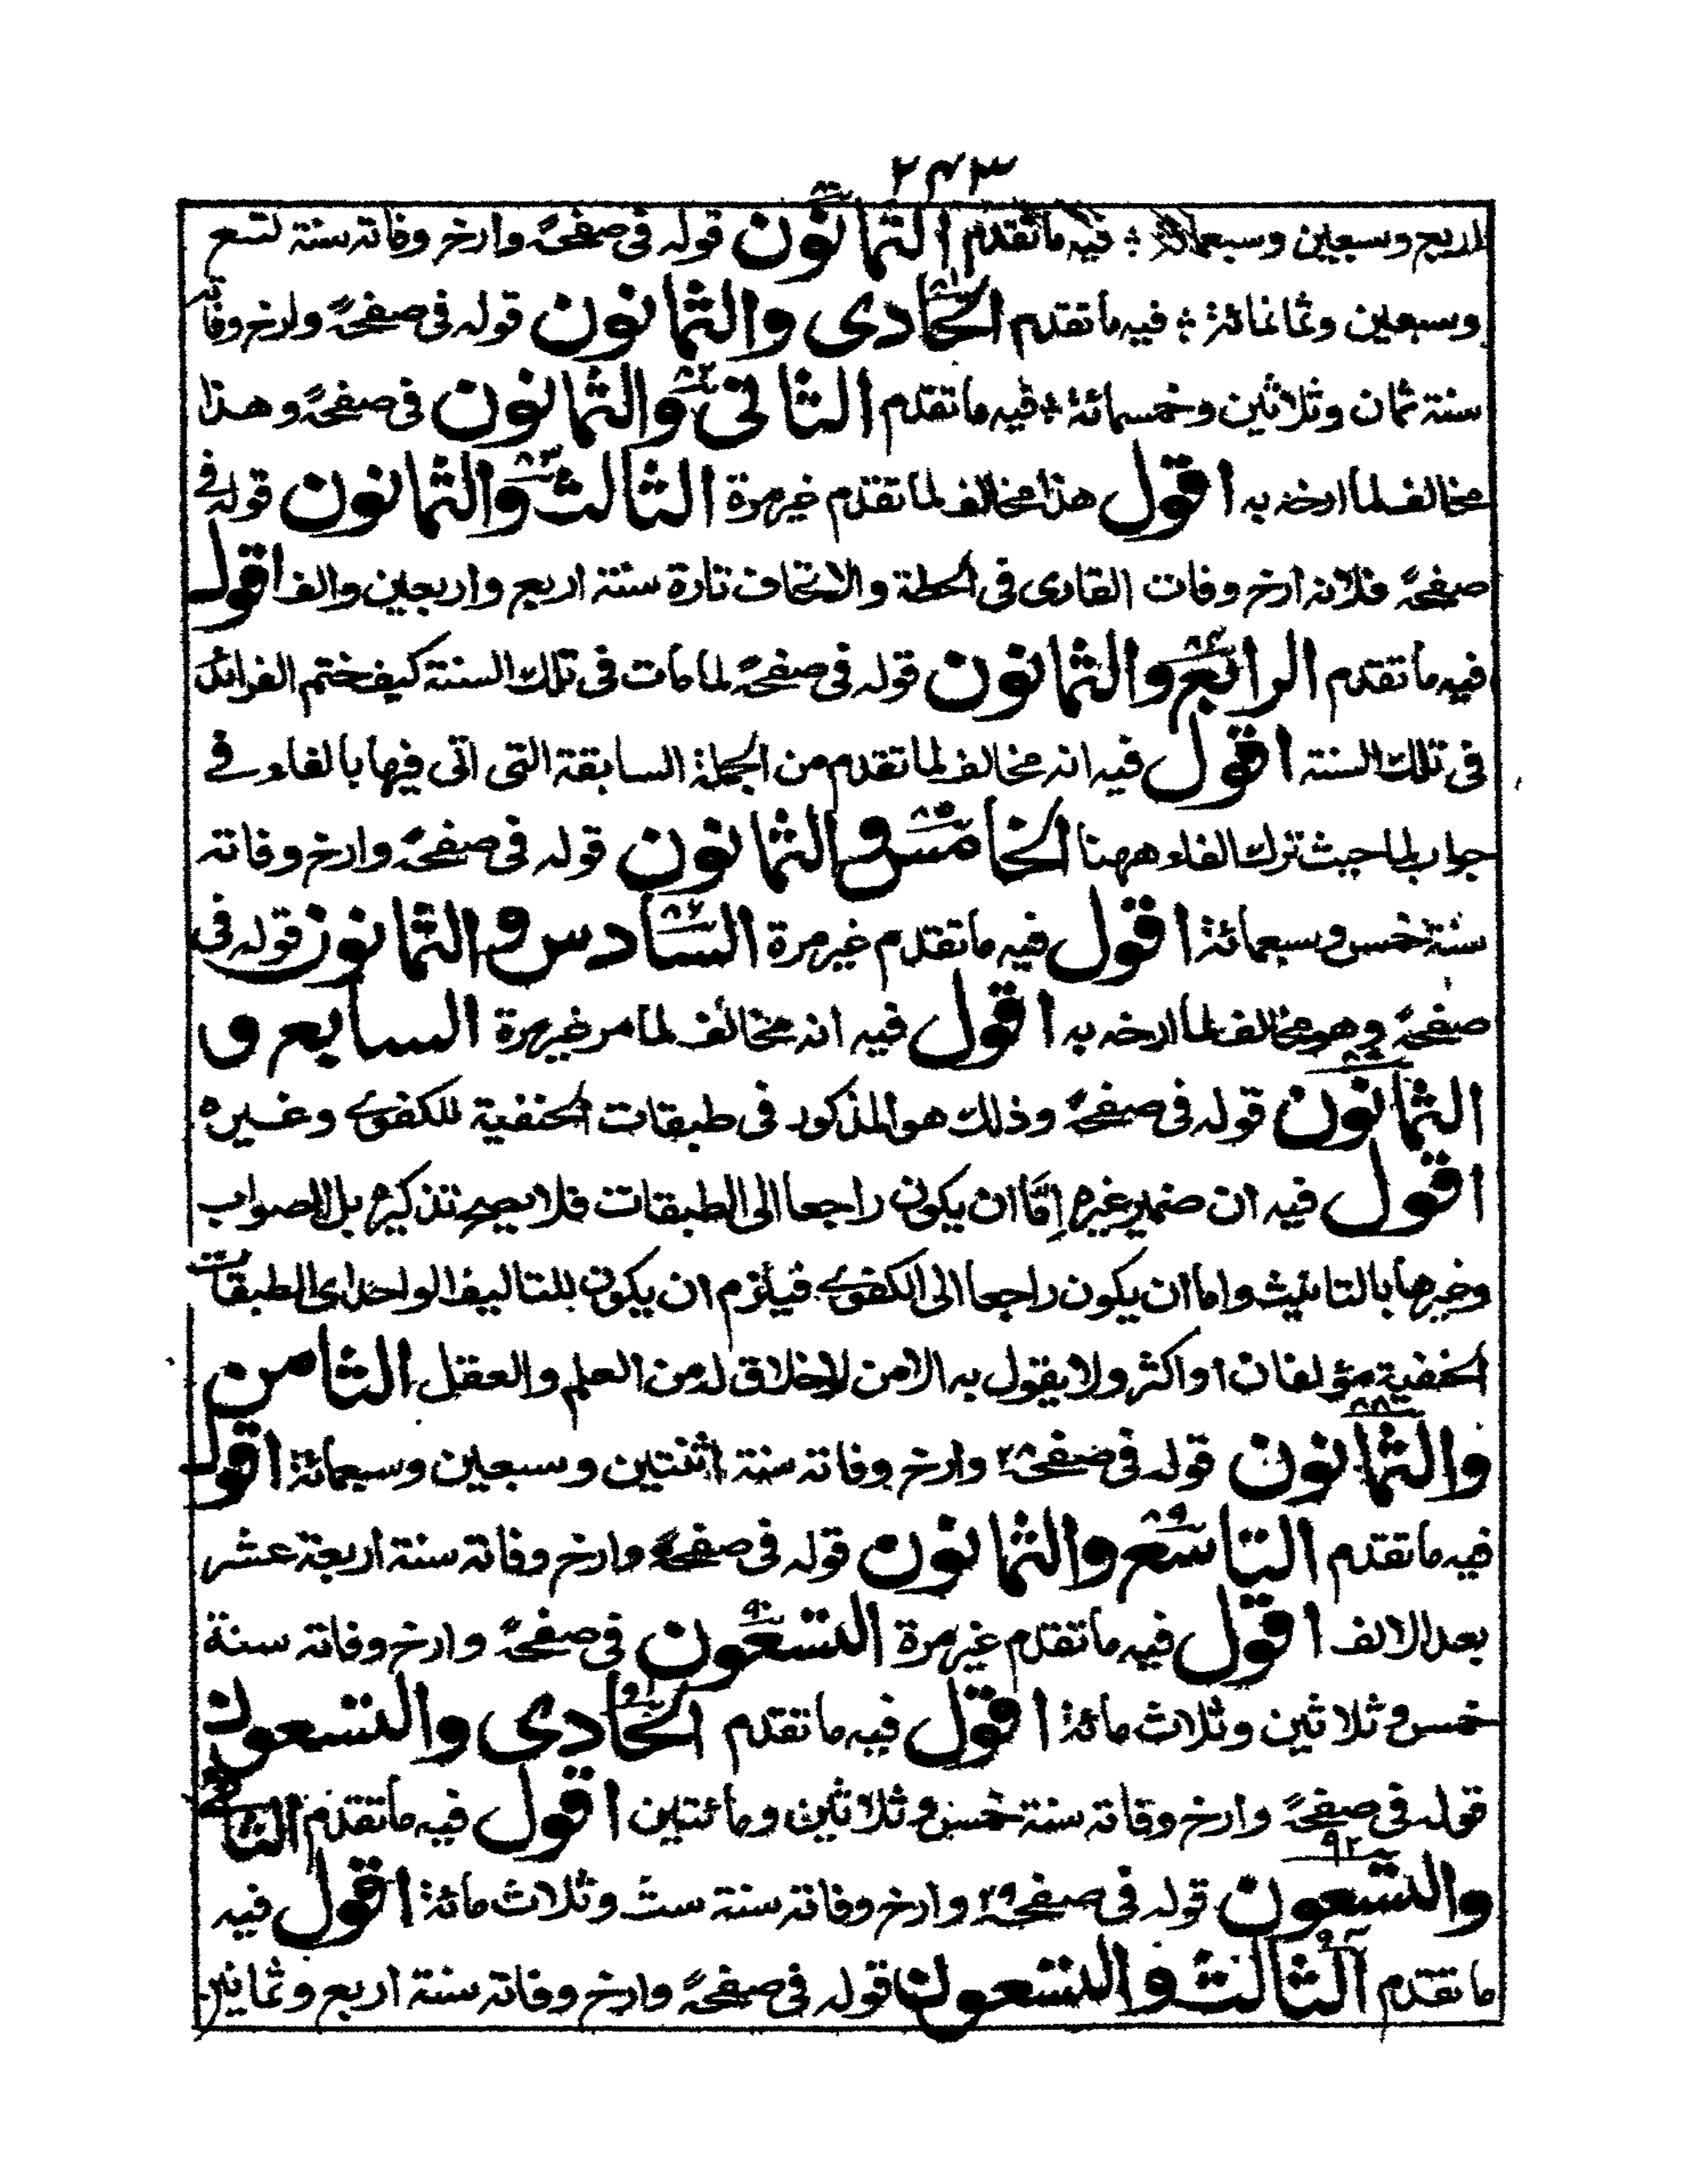 ٢٤٣
اربع وسبعين وسبعمائة فيه ما تقدم الثمانون قوله فى صفحة وارخ وفاته سنة تسع
وسبعين وثمانمائة فيه ما تقدم الحادى والثمانون قوله فى صفحة وارخ وفاته
سنة ثمان وثلاثين وخمسمائة فيه ما تقدم الثانى والثمانون فى صفحة وهذا
مخالف لما ارخه به اقول هذا مخالف لما تقدم غير مرة الثالث والثمانون قوله فى
صفحة فلانه ارخ وفات القارى فى الحطة والاتحاف تارة سنة اربع واربعين والف اقول
فيه ما تقدم الرابع والثمانون قوله فى صفحة لما مات فى تلك السنة كيف ختم الفرائد
فى تلك السنة اقول فيه انه مخالف لما تقدم من الجملة السابقة التى اتى فيها بالفاء فے
جواب لما حيث ترك الفاء ههنا الخامس والثمانون قوله فى صفحة وارخ وفاته
سنة خمس وسبعمائة اقول فيه ما تقدم غير مرة السادس والثمانون قوله فى
صفحة وهو مخالف لما ارخه به اقول فيه انه مخالف لما مر غير مرة السابع و
الثمانون قوله فى صفحة وذلك هو المذكور فى طبقات الحنفية للكفوے وغيره
اقول فيه ان ضمير غيره اِمَّا ان يكون راجعا الى الطبقات فلا يصح تذكيره بل الصواب
وغيرها بالتانيث واما ان يكون راجعا الى الكفوے فيلزم ان يكون للتاليف الواحد اى الطبقات
الحنفية مؤلفان او اكثر ولا يقول به الا من لا خلاق له من العلم والعقل الثامن
والثمانون قوله فى صفحة٢٨ وارخ وفاته سنة اثنتين وسبعين وسبعمائة اقول
فيه ما تقدم التاسع والثمانون قوله فى صفحة وارخ وفاته سنة اربعة عشر
بعد الالف اقول فيه ما تقدم غير مرة التسعون فى صفحة وارخ وفاته سنة
خمس وثلاثين وثلاث مائة اقول فيه ما تقدم الحادى والتسعون
قوله فى صفحة وارخ وفاته سنة خمس وثلاثين ومائتين اقول فيه ما تقدم الثانى
والتسعون قوله فى صفحة٢٩ وارخ وفاته سنة ست وثلاث مائة اقول فيه
ما تقدم الثالث والتسعون قوله فى صفحة وارخ وفاته سنة اربع وثمانين